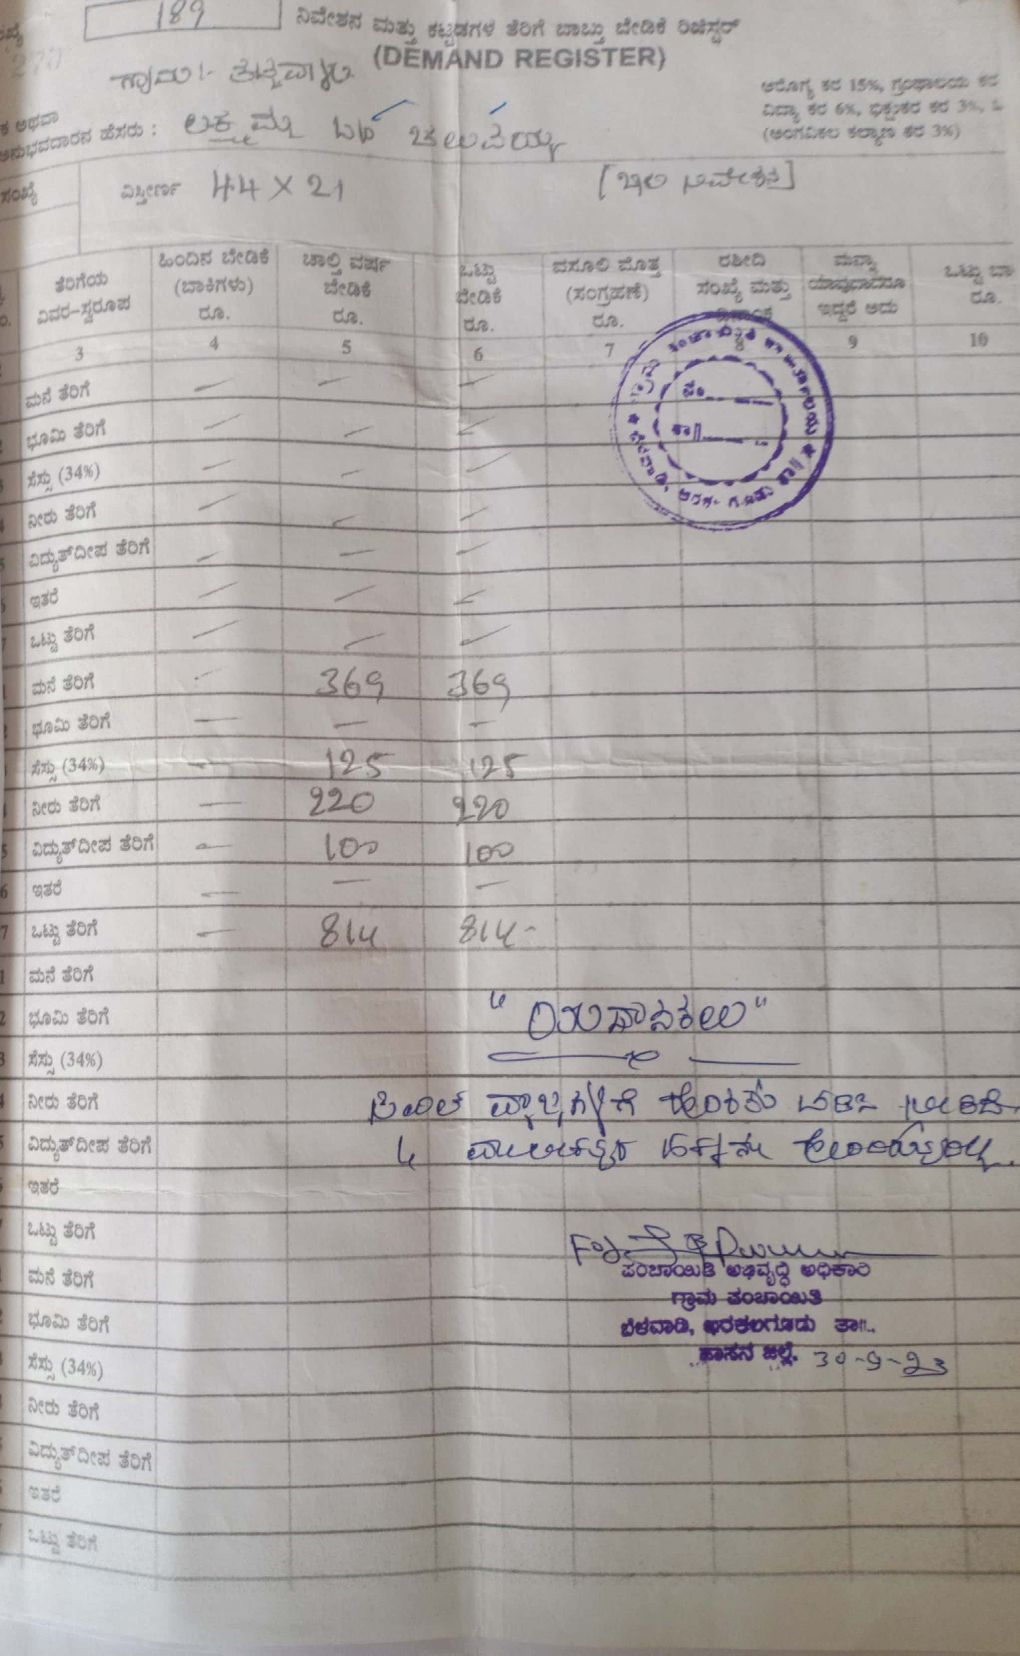 189
ನಿವೇಶನ ಮತ್ತು ಕಟ್ಟಡಗಳ ತೆರಿಗೆ ಬಾಬ್ತು ಬೇಡಿಕೆ ರಿಜಿಸ್ಟರ್
(DEMAND REGISTER)
ಗ್ರಾಮ:-
ಆರೋಗ್ಯ ಕರ 15%, ಗ್ರಂಥಾಲಯ ಕರ
ವಿದ್ಯಾ ಕರ 6%, ಭಿಕ್ಷುಕರ ಕರ 3%,
(ಅಂಗವಿಕಲ ಕಲ್ಯಾಣ ಕರ 3%)
ಕ ಅಥವಾ
ಅನುಭವದಾರನ ಹೆಸರು : ಲಕ್ಷ್ಮಮ್ಮ
ಸಂಖ್ಯೆ ವಿಸ್ತೀರ್ಣ 44 X 21 [ಖಾಲಿ ನಿವೇಶನ]
ತೆರಿಗೆಯ ವಿವರ-ಸ್ವರೂಪ
ಹಿಂದಿನ ಬೇಡಿಕೆ (ಬಾಕಿಗಳು) ರೂ.
ಚಾಲ್ತಿ ವರ್ಷ ಬೇಡಿಕೆ ರೂ.
ಒಟ್ಟು ಬೇಡಿಕೆ ರೂ.
ವಸೂಲಿ ಮೊತ್ತ (ಸಂಗ್ರಹಣೆ) ರೂ.
ರಶೀದಿ ಸಂಖ್ಯೆ ಮತ್ತು ದಿನಾಂಕ
ಮನ್ನಾ ಯಾವುದಾದರೂ ಇದ್ದರೆ ಅದು
ಒಟ್ಟು ಬಾ ರೂ.
3 4 5 6 7 8 9 10
ಮನೆ ತೆರಿಗೆ
ಭೂಮಿ ತೆರಿಗೆ
ಸೆಸ್ಸು (34%)
ನೀರು ತೆರಿಗೆ
ವಿದ್ಯುತ್‌ದೀಪ ತೆರಿಗೆ
ಇತರೆ
ಒಟ್ಟು ತೆರಿಗೆ
ಮನೆ ತೆರಿಗೆ 369 369
ಭೂಮಿ ತೆರಿಗೆ — –
ಸೆಸ್ಸು (34%) 125 125
ನೀರು ತೆರಿಗೆ — 220 220
ವಿದ್ಯುತ್‌ದೀಪ ತೆರಿಗೆ 100 100
6 ಇತರೆ — — –
7 ಒಟ್ಟು ತೆರಿಗೆ — 814 814-
1 ಮನೆ ತೆರಿಗೆ
2 ಭೂಮಿ ತೆರಿಗೆ
3 ಸೆಸ್ಸು (34%)
ನೀರು ತೆರಿಗೆ
ವಿದ್ಯುತ್‌ದೀಪ ತೆರಿಗೆ
ಇತರೆ
ಒಟ್ಟು ತೆರಿಗೆ
ಮನೆ ತೆರಿಗೆ
ಭೂಮಿ ತೆರಿಗೆ
ಸೆಸ್ಸು (34%)
ನೀರು ತೆರಿಗೆ
ವಿದ್ಯುತ್‌ದೀಪ ತೆರಿಗೆ
ಇತರೆ
ಒಟ್ಟು ತೆರಿಗೆ
"ಯಥಾನಕಲು"
ಸಿವಿಲ್ ವ್ಯಾಜ್ಯಗಳಿಗೆ ಹೊರತು
ಮಾಲೀಕತ್ವದ ಹಕ್ಕನ್ನು ಹೊಂದಿರುವುದಿಲ್ಲ.
ಪಂಚಾಯಿತಿ ಅಭಿವೃದ್ಧಿ ಅಧಿಕಾರಿ
ಗ್ರಾಮ ಪಂಚಾಯಿತಿ
ಬೆಳವಾಡಿ, ಅರಕಲಗೂಡು ತಾ||.,
ಹಾಸನ ಜಿಲ್ಲೆ. 30-9-23